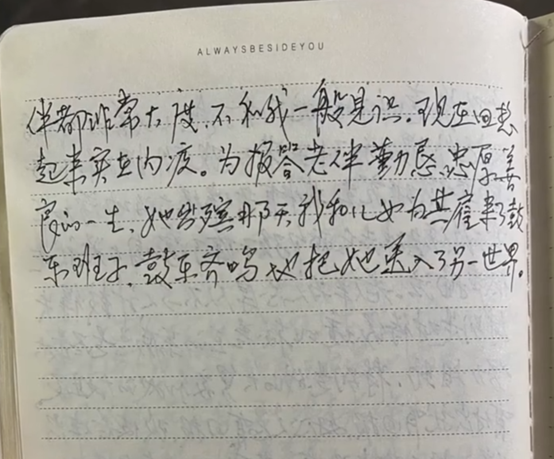 ALWAYSBESIDEYOU
伴都非常大度，不和我一般见识。现在回想
起来实在内疚。为报答老伴勤恳、忠厚善
良的一生，她出殡那天我和儿女为其雇来了鼓
乐班子，鼓乐齐鸣地把她送入了另一世界。